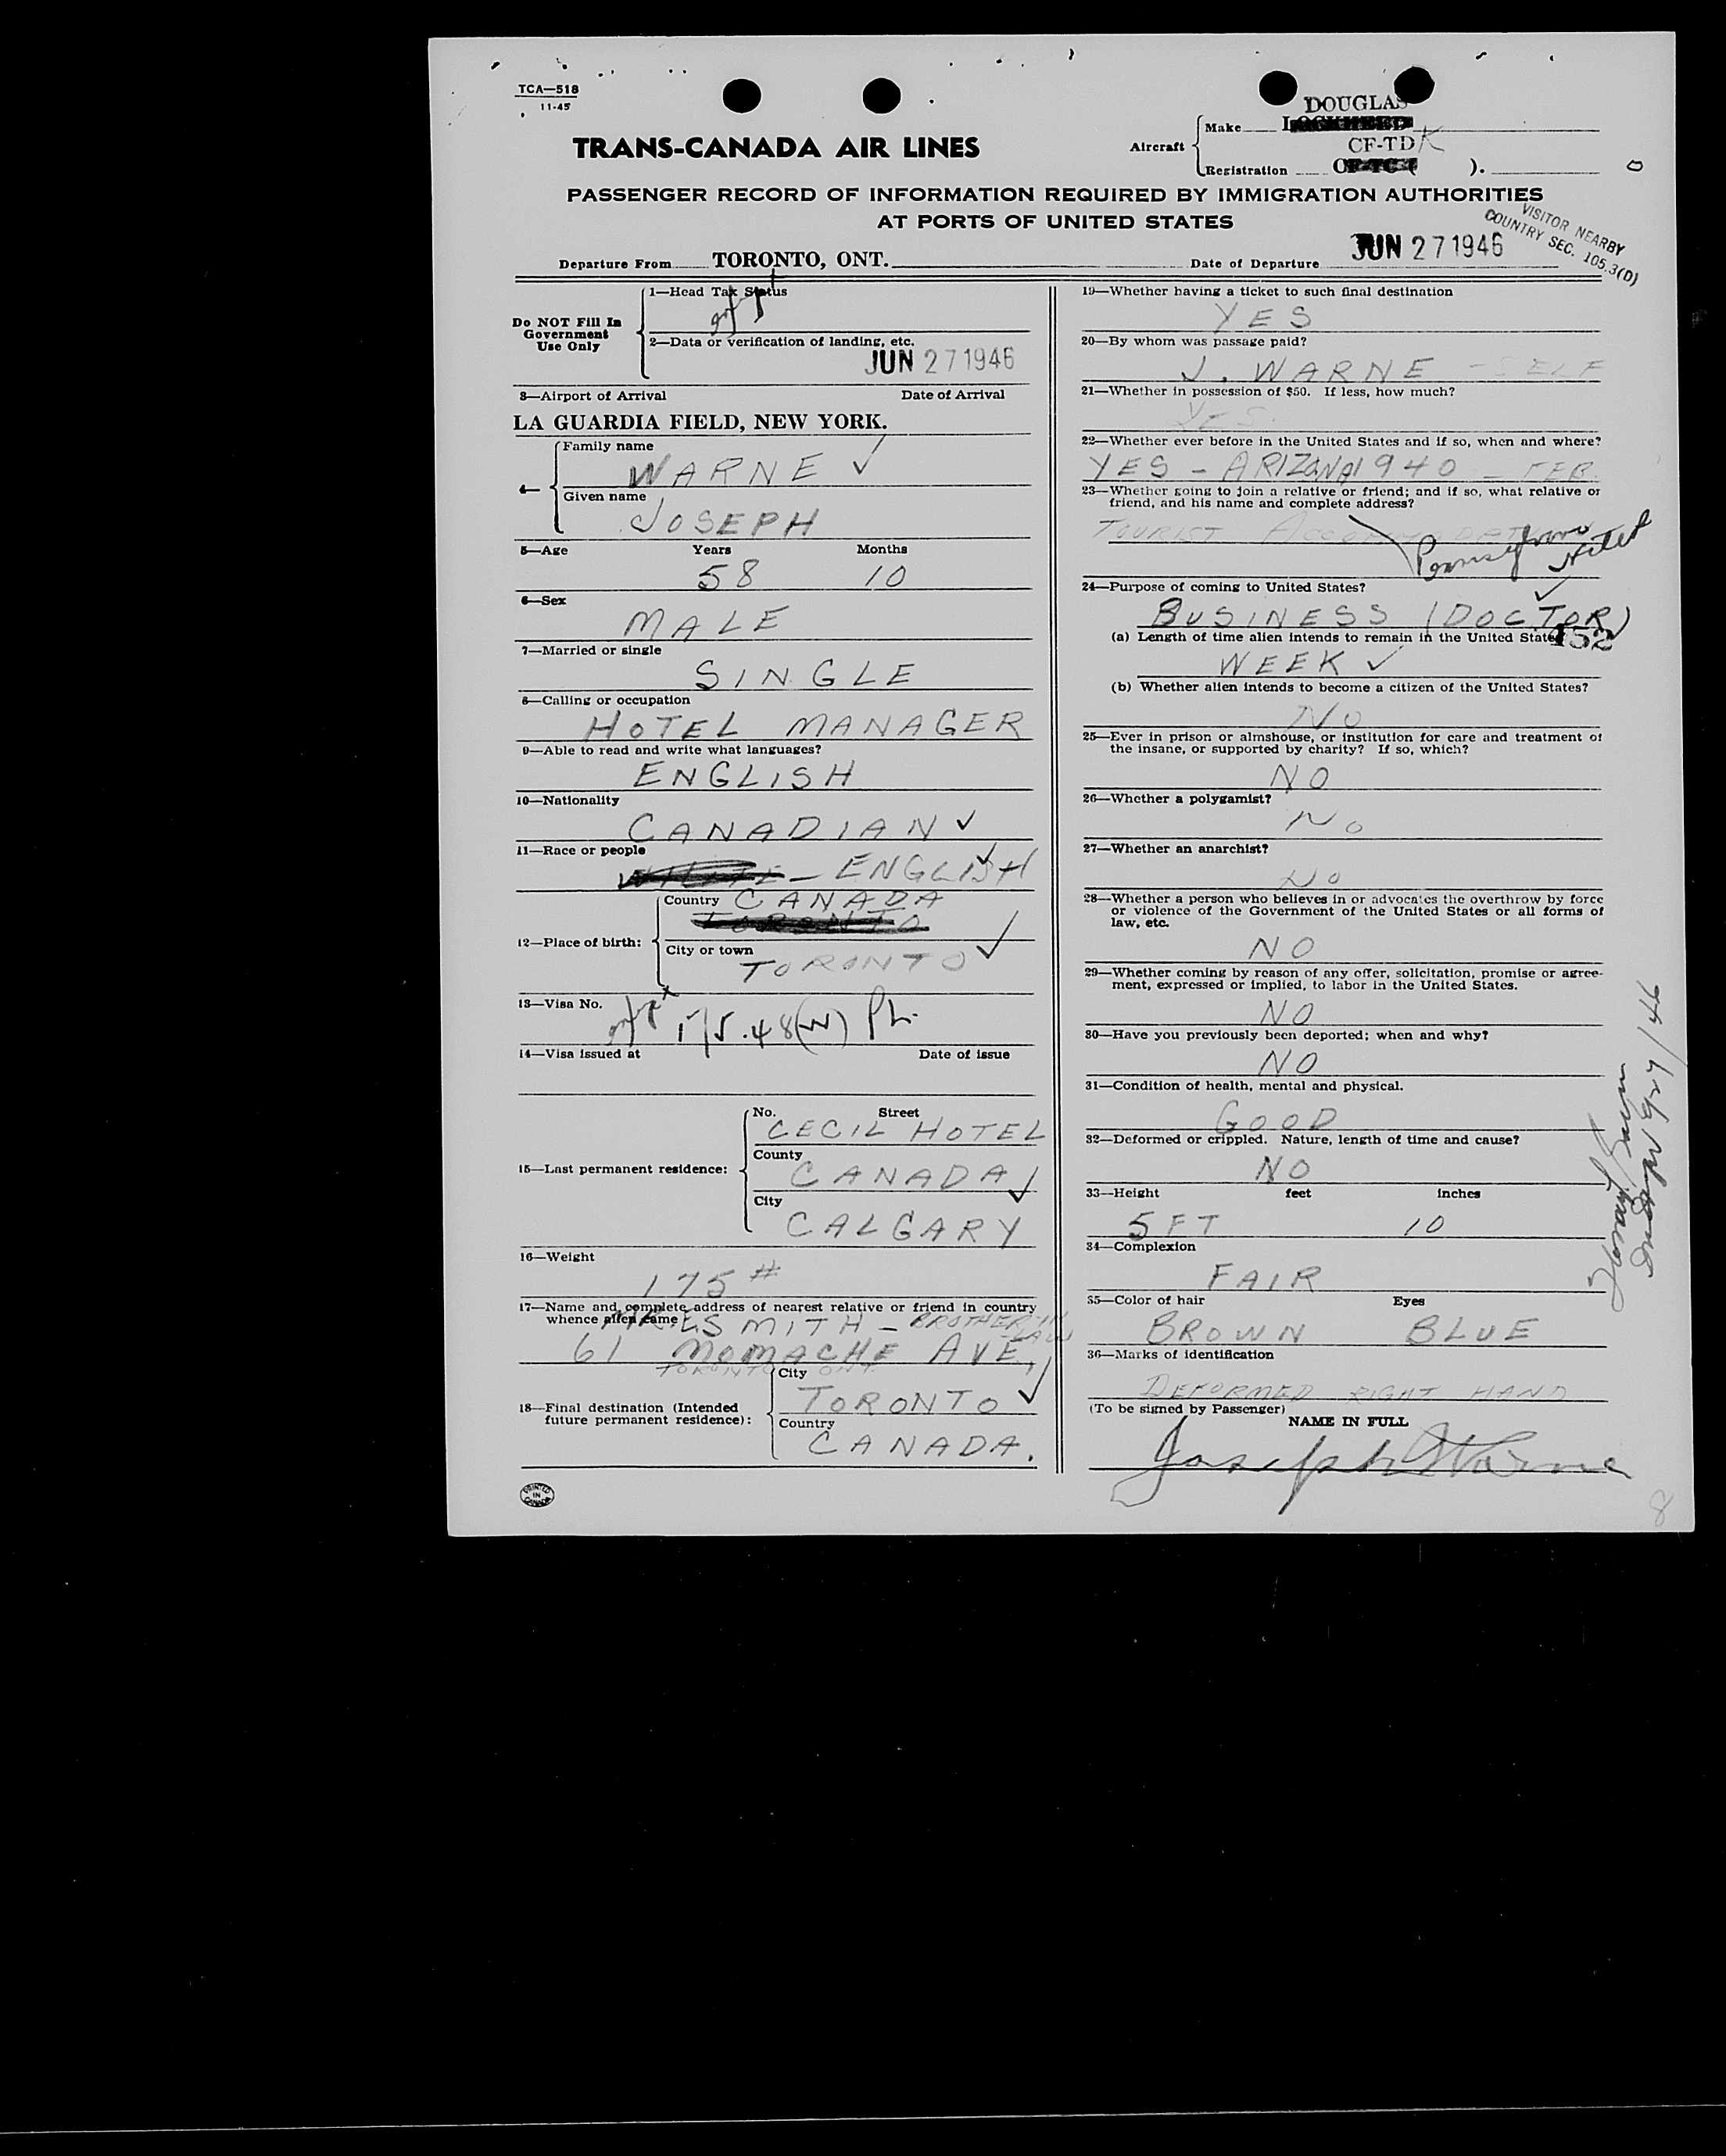 TCA—518
11-45
DOUGLAS
Aircraft
Make LOCKHEED
CF-TDK
Registration CF-TC-( ).
TRANS-CANADA AIR LINES
PASSENGER RECORD OF INFORMATION REQUIRED BY IMMIGRATION AUTHORITIES
AT PORTS OF UNITED STATES
VISITOR NEARBY
COUNTRY SEC. 105.3(D)
Departure From TORONTO, ONT.
Date of Departure JUN 27 1946
Do NOT Fill In
Government
Use Only
1—Head Tax Status
2—Data or verification of landing, etc.
JUN 27 1946
3—Airport of Arrival Date of Arrival
LA GUARDIA FIELD, NEW YORK.
4—
Family name
WARNE ✓
Given name
JOSEPH
5—Age Years Months
58 10
6—Sex
MALE
7—Married or single
SINGLE
8—Calling or occupation
HOTEL MANAGER
9—Able to read and write what languages?
ENGLISH
10—Nationality
CANADIAN ✓
11—Race or people
WHITE — ENGLISH ✓
12—Place of birth:
Country CANADA
TORONTO
City or town
TORONTO ✓
13—Visa No.
175.48(w) Ph.
14—Visa issued at Date of issue
15—Last permanent residence:
No. Street
CECIL HOTEL
County
CANADA ✓
City
CALGARY
16—Weight
175 #
17—Name and complete address of nearest relative or friend in country
whence alien came
SMITH — BROTHER IN LAW
61 MOMACHE AVE,
TORONTO ONT
18—Final destination (Intended
future permanent residence):
City
TORONTO ✓
Country
CANADA.
PRINTED
IN
CANADA
19—Whether having a ticket to such final destination
YES
20—By whom was passage paid?
J. WARNE - SELF
21—Whether in possession of $50. If less, how much?
YES.
22—Whether ever before in the United States and if so, when and where?
YES - ARIZONA 1940 - FEB.
23—Whether going to join a relative or friend; and if so, what relative or
friend, and his name and complete address?
TOURIST ACCOMODATION
Pennsylvania Hotel
24—Purpose of coming to United States?
BUSINESS (DOCTOR) ✓
(a) Length of time alien intends to remain in the United States
452
WEEK ✓
(b) Whether alien intends to become a citizen of the United States?
NO
25—Ever in prison or almshouse, or institution for care and treatment of
the insane, or supported by charity? If so, which?
NO
26—Whether a polygamist?
NO
27—Whether an anarchist?
NO
28—Whether a person who believes in or advocates the overthrow by force
or violence of the Government of the United States or all forms of
law, etc.
NO
29—Whether coming by reason of any offer, solicitation, promise or agree-
ment, expressed or implied, to labor in the United States.
NO
30—Have you previously been deported; when and why?
NO
31—Condition of health, mental and physical.
GOOD
32—Deformed or crippled. Nature, length of time and cause?
NO
33—Height feet inches
5 FT 10
34—Complexion
FAIR
35—Color of hair Eyes
BROWN BLUE
36—Marks of identification
DEFORMED RIGHT HAND
(To be signed by Passenger)
NAME IN FULL
Joseph Warne
8